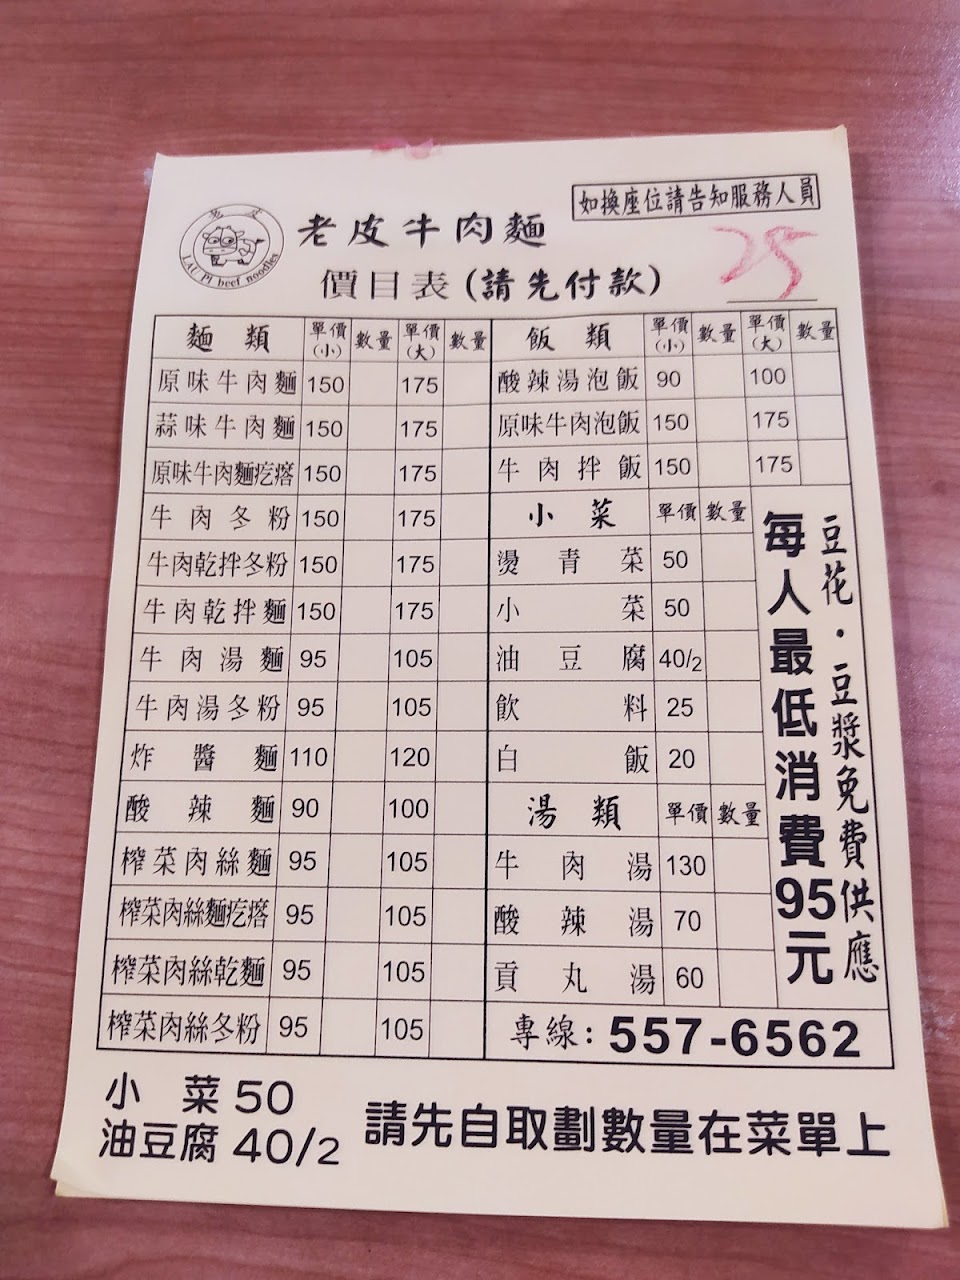 如換座位請告知服務人員
老皮
LAU Pi beef noodles
老皮牛肉麵
25
價目表(請先付款)
麵類 單價(小) 數量 單價(大) 數量
原味牛肉麵 150 175
蒜味牛肉麵 150 175
原味牛肉麵疙瘩 150 175
牛肉冬粉 150 175
牛肉乾拌冬粉 150 175
牛肉乾拌麵 150 175
牛肉湯麵 95 105
牛肉湯冬粉 95 105
炸醬麵 110 120
酸辣麵 90 100
榨菜肉絲麵 95 105
榨菜肉絲麵疙瘩 95 105
榨菜肉絲乾麵 95 105
榨菜肉絲冬粉 95 105
飯類 單價(小) 數量 單價(大) 數量
酸辣湯泡飯 90 100
原味牛肉泡飯 150 175
牛肉拌飯 150 175
小菜 單價 數量
燙青菜 50
小菜 50
油豆腐 40/2
飲料 25
白飯 20
湯類 單價 數量
牛肉湯 130
酸辣湯 70
貢丸湯 60
豆花.豆漿免費供應
每人最低消費95元
專線:557-6562
小菜 50
油豆腐 40/2
請先自取劃數量在菜單上